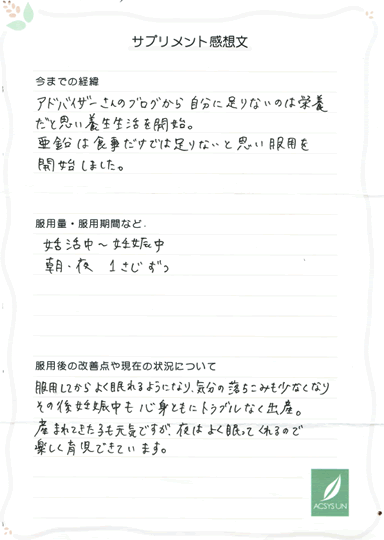 サプリメント感想文
今までの経緯
アドバイザーさんのブログから自分に足りないのは栄養
だと思い養生生活を開始。
亜鉛は食事だけでは足りないと思い服用を
開始しました。
服用量・服用期間など
妊活中～妊娠中
朝・夜 1さじずつ
服用後の改善点や現在の状況について
服用してからよく眠れるようになり、気分の落ちこみも少なくなり
その後妊娠中も心身ともにトラブルなく出産。
産まれてきた子も元気ですが、夜はよく眠ってくれるので
楽しく育児できています。
ACSYS UN